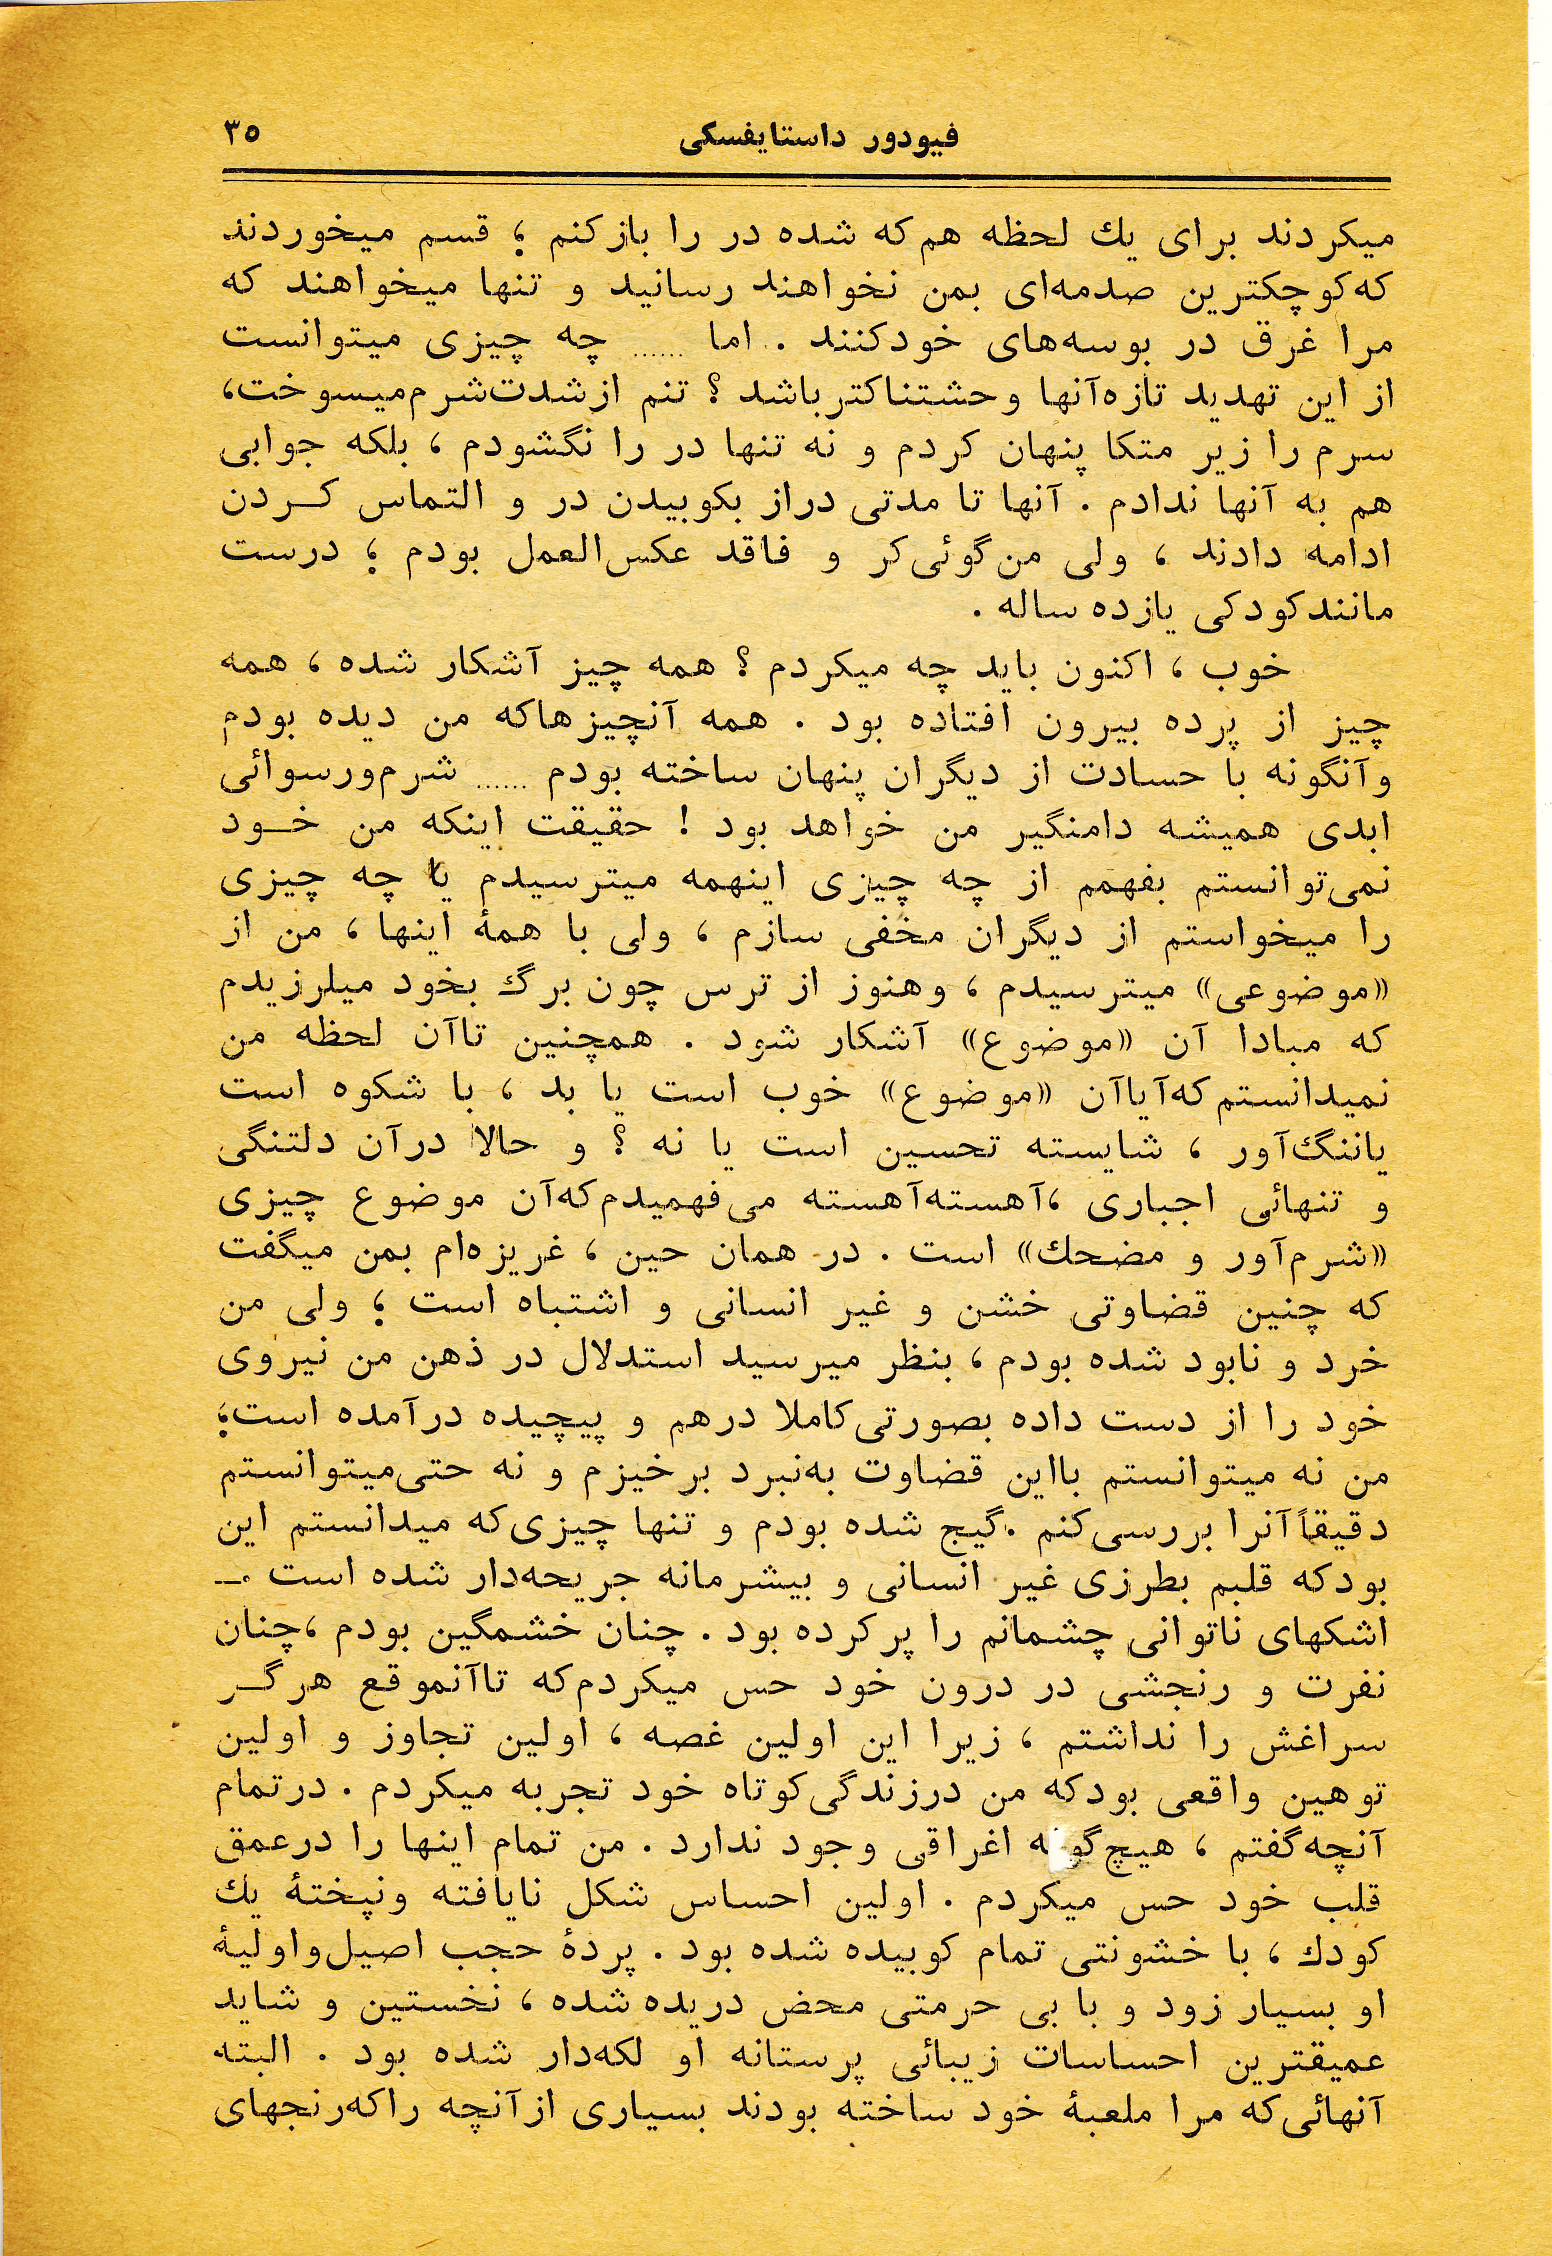 فیودور داستایفسکی ۳۵
میکردند برای یك لحظه هم‌که شده در را بازکنم ؛ قسم میخوردند
که‌کوچکترین صدمه‌ای بمن نخواهند رسانید و تنها میخواهند که
مرا غرق در بوسه‌های خودکنند . اما ...... چه چیزی میتوانست
از این تهدید تازه‌آنها وحشتناکتر باشد ؟ تنم ازشدت‌شرم‌میسوخت،
سرم را زیر متکا پنهان کردم و نه تنها در را نگشودم ، بلکه جوابی
هم به آنها ندادم . آنها تا مدتی دراز بکوبیدن در و التماس کردن
ادامه دادند ، ولی من‌گوئی‌کر و فاقد عکس‌العمل بودم ؛ درست
مانندکودکی یازده ساله .
خوب ، اکنون باید چه میکردم ؟ همه چیز آشکار شده ، همه
چیز از پرده بیرون افتاده بود . همه آنچیزهاکه من دیده بودم
وآنگونه با حسادت از دیگران پنهان ساخته بودم ...... شرم‌ورسوائی
ابدی همیشه دامنگیر من خواهد بود ! حقیقت اینکه من خود
نمی‌توانستم بفهمم از چه چیزی اینهمه میترسیدم یا چه چیزی
را میخواستم از دیگران مخفی سازم ، ولی با همهٔ اینها ، من از
«موضوعی» میترسیدم ، وهنوز از ترس چون برگ بخود میلرزیدم
که مبادا آن «موضوع» آشکار شود . همچنین تاآن لحظه من
نمیدانستم‌که‌آیاآن «موضوع» خوب است یا بد ، با شکوه است
یاننگ‌آور ، شایسته تحسین است یا نه ؟ و حالا درآن دلتنگی
و تنهائی اجباری ،آهسته‌آهسته می‌فهمیدم‌که‌آن موضوع چیزی
«شرم‌آور و مضحك» است . در همان حین ، غریزه‌ام بمن میگفت
که چنین قضاوتی خشن و غیر انسانی و اشتباه است ؛ ولی من
خرد و نابود شده بودم ، بنظر میرسید استدلال در ذهن من نیروی
خود را از دست داده بصورتی‌کاملا درهم و پیچیده درآمده است؛
من نه میتوانستم بااین قضاوت به‌نبرد برخیزم و نه حتی‌میتوانستم
دقیقاً آنرا بررسی‌کنم .گیج شده بودم و تنها چیزی‌که میدانستم این
بودکه قلبم بطرزی غیر انسانی و بیشرمانه جریحه‌دار شده است .—
اشکهای ناتوانی چشمانم را پرکرده بود . چنان خشمگین بودم ،چنان
نفرت و رنجشی در درون خود حس میکردم‌که تاآنموقع هرگز
سراغش را نداشتم ، زیرا این اولین غصه ، اولین تجاوز و اولین
توهین واقعی بودکه من درزندگی‌کوتاه خود تجربه میکردم . درتمام
آنچه‌گفتم ، هیچ‌گونه اغراقی وجود ندارد . من تمام اینها را درعمق
قلب خود حس میکردم . اولین احساس شکل نایافته ونپختهٔ یك
کودك ، با خشونتی تمام کوبیده شده بود . پردهٔ حجب اصیل‌واولیهٔ
او بسیار زود و با بی حرمتی محض دریده شده ، نخستین و شاید
عمیقترین احساسات زیبائی پرستانه او لکه‌دار شده بود . البته
آنهائی‌که مرا ملعبهٔ خود ساخته بودند بسیاری ازآنچه راکه‌رنجهای